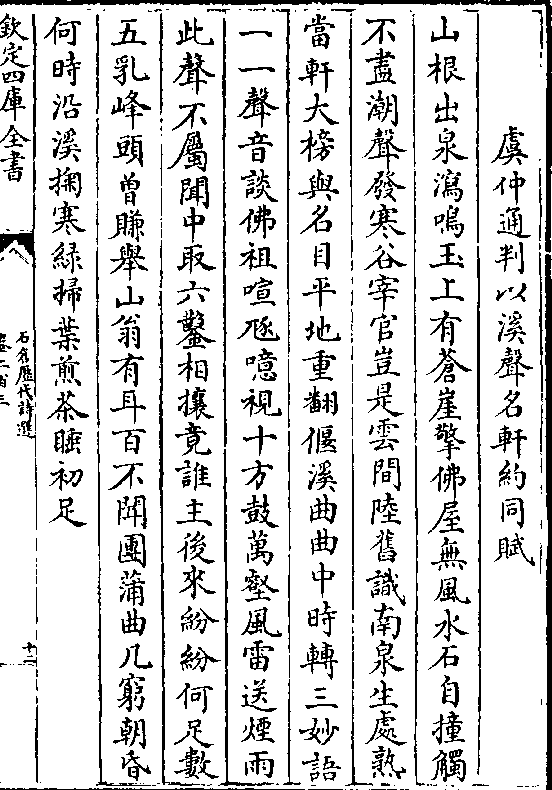 虞仲通判以溪聲名軒約同賦
山根出泉瀉鳴玉上有蒼崖擎佛屋無風水石自撞觸
不盡潮聲發寒谷宰官豈是雲間陸舊識南泉生處熟
當軒大榜與名目平地重翻偃溪曲曲中時轉三妙語
一一聲音談佛祖喧豗噫視十方鼓萬壑風雷送煙雨
此聲不屬聞中取六鑿相攘竟誰主後來紛紛何足數
五乳峰頭曾賺舉山翁有耳百不聞團蒲曲几窮朝昏
何時沿溪掬寒緑掃葉煎茶睡初足
欽定四庫全書
石倉歷代詩選
卷二百三
十二